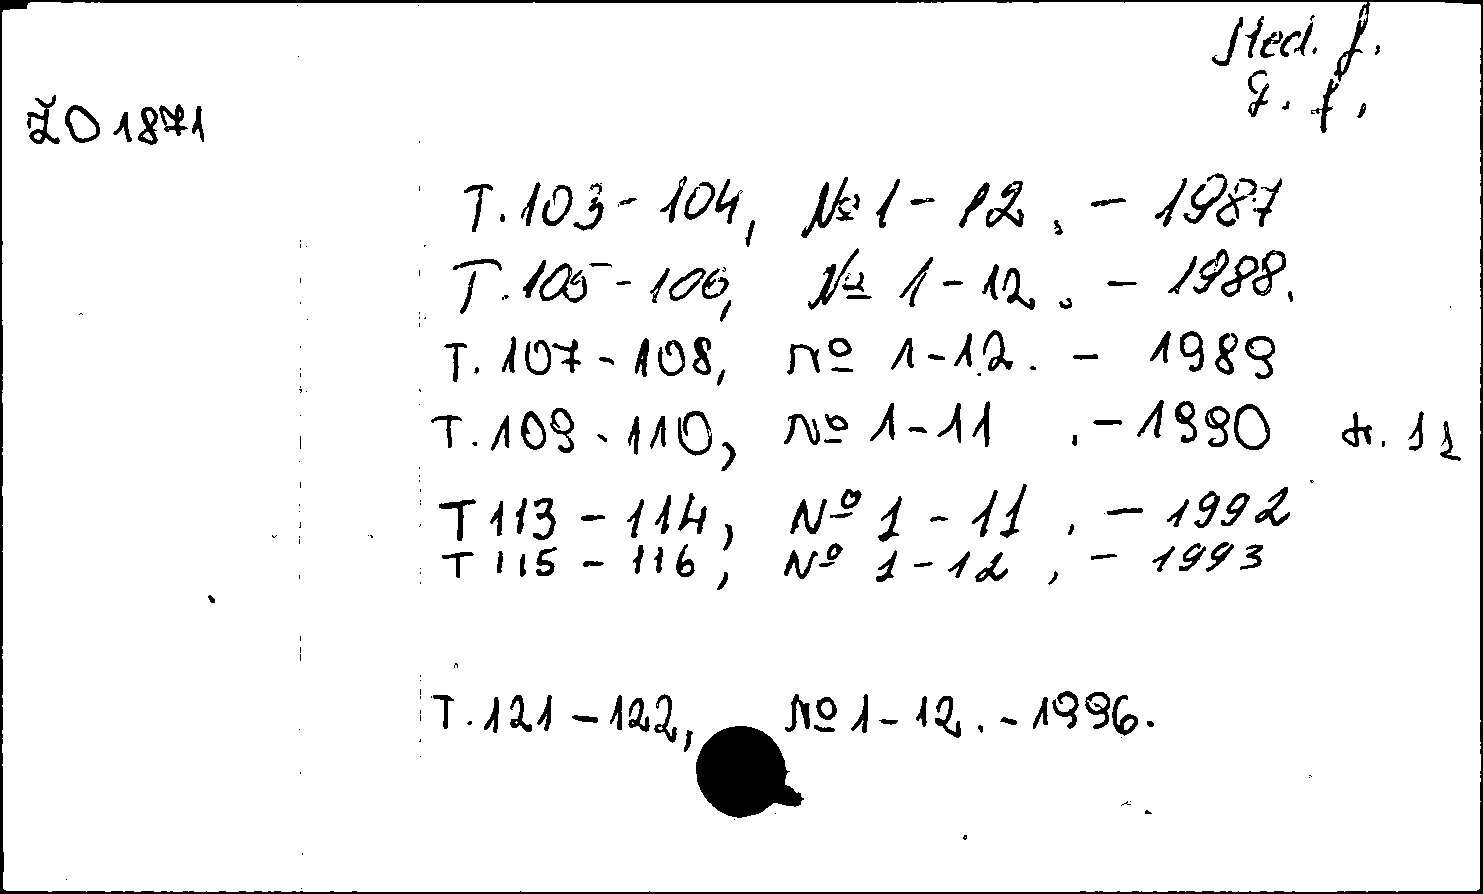 Med. f.
G. f.
ŽO 1871
T. 103 - 104, № 1 - 12. - 1987
T. 105 - 106, № 1 - 12. - 1988.
T. 107 - 108, № 1 - 12. - 1989
T. 109 - 110, № 1 - 11. - 1990 tr. 11
T 113 - 114, № 1 - 11. - 1992
T 115 - 116, № 1 - 12, - 1993
T. 121 - 122, № 1 - 12. - 1996.